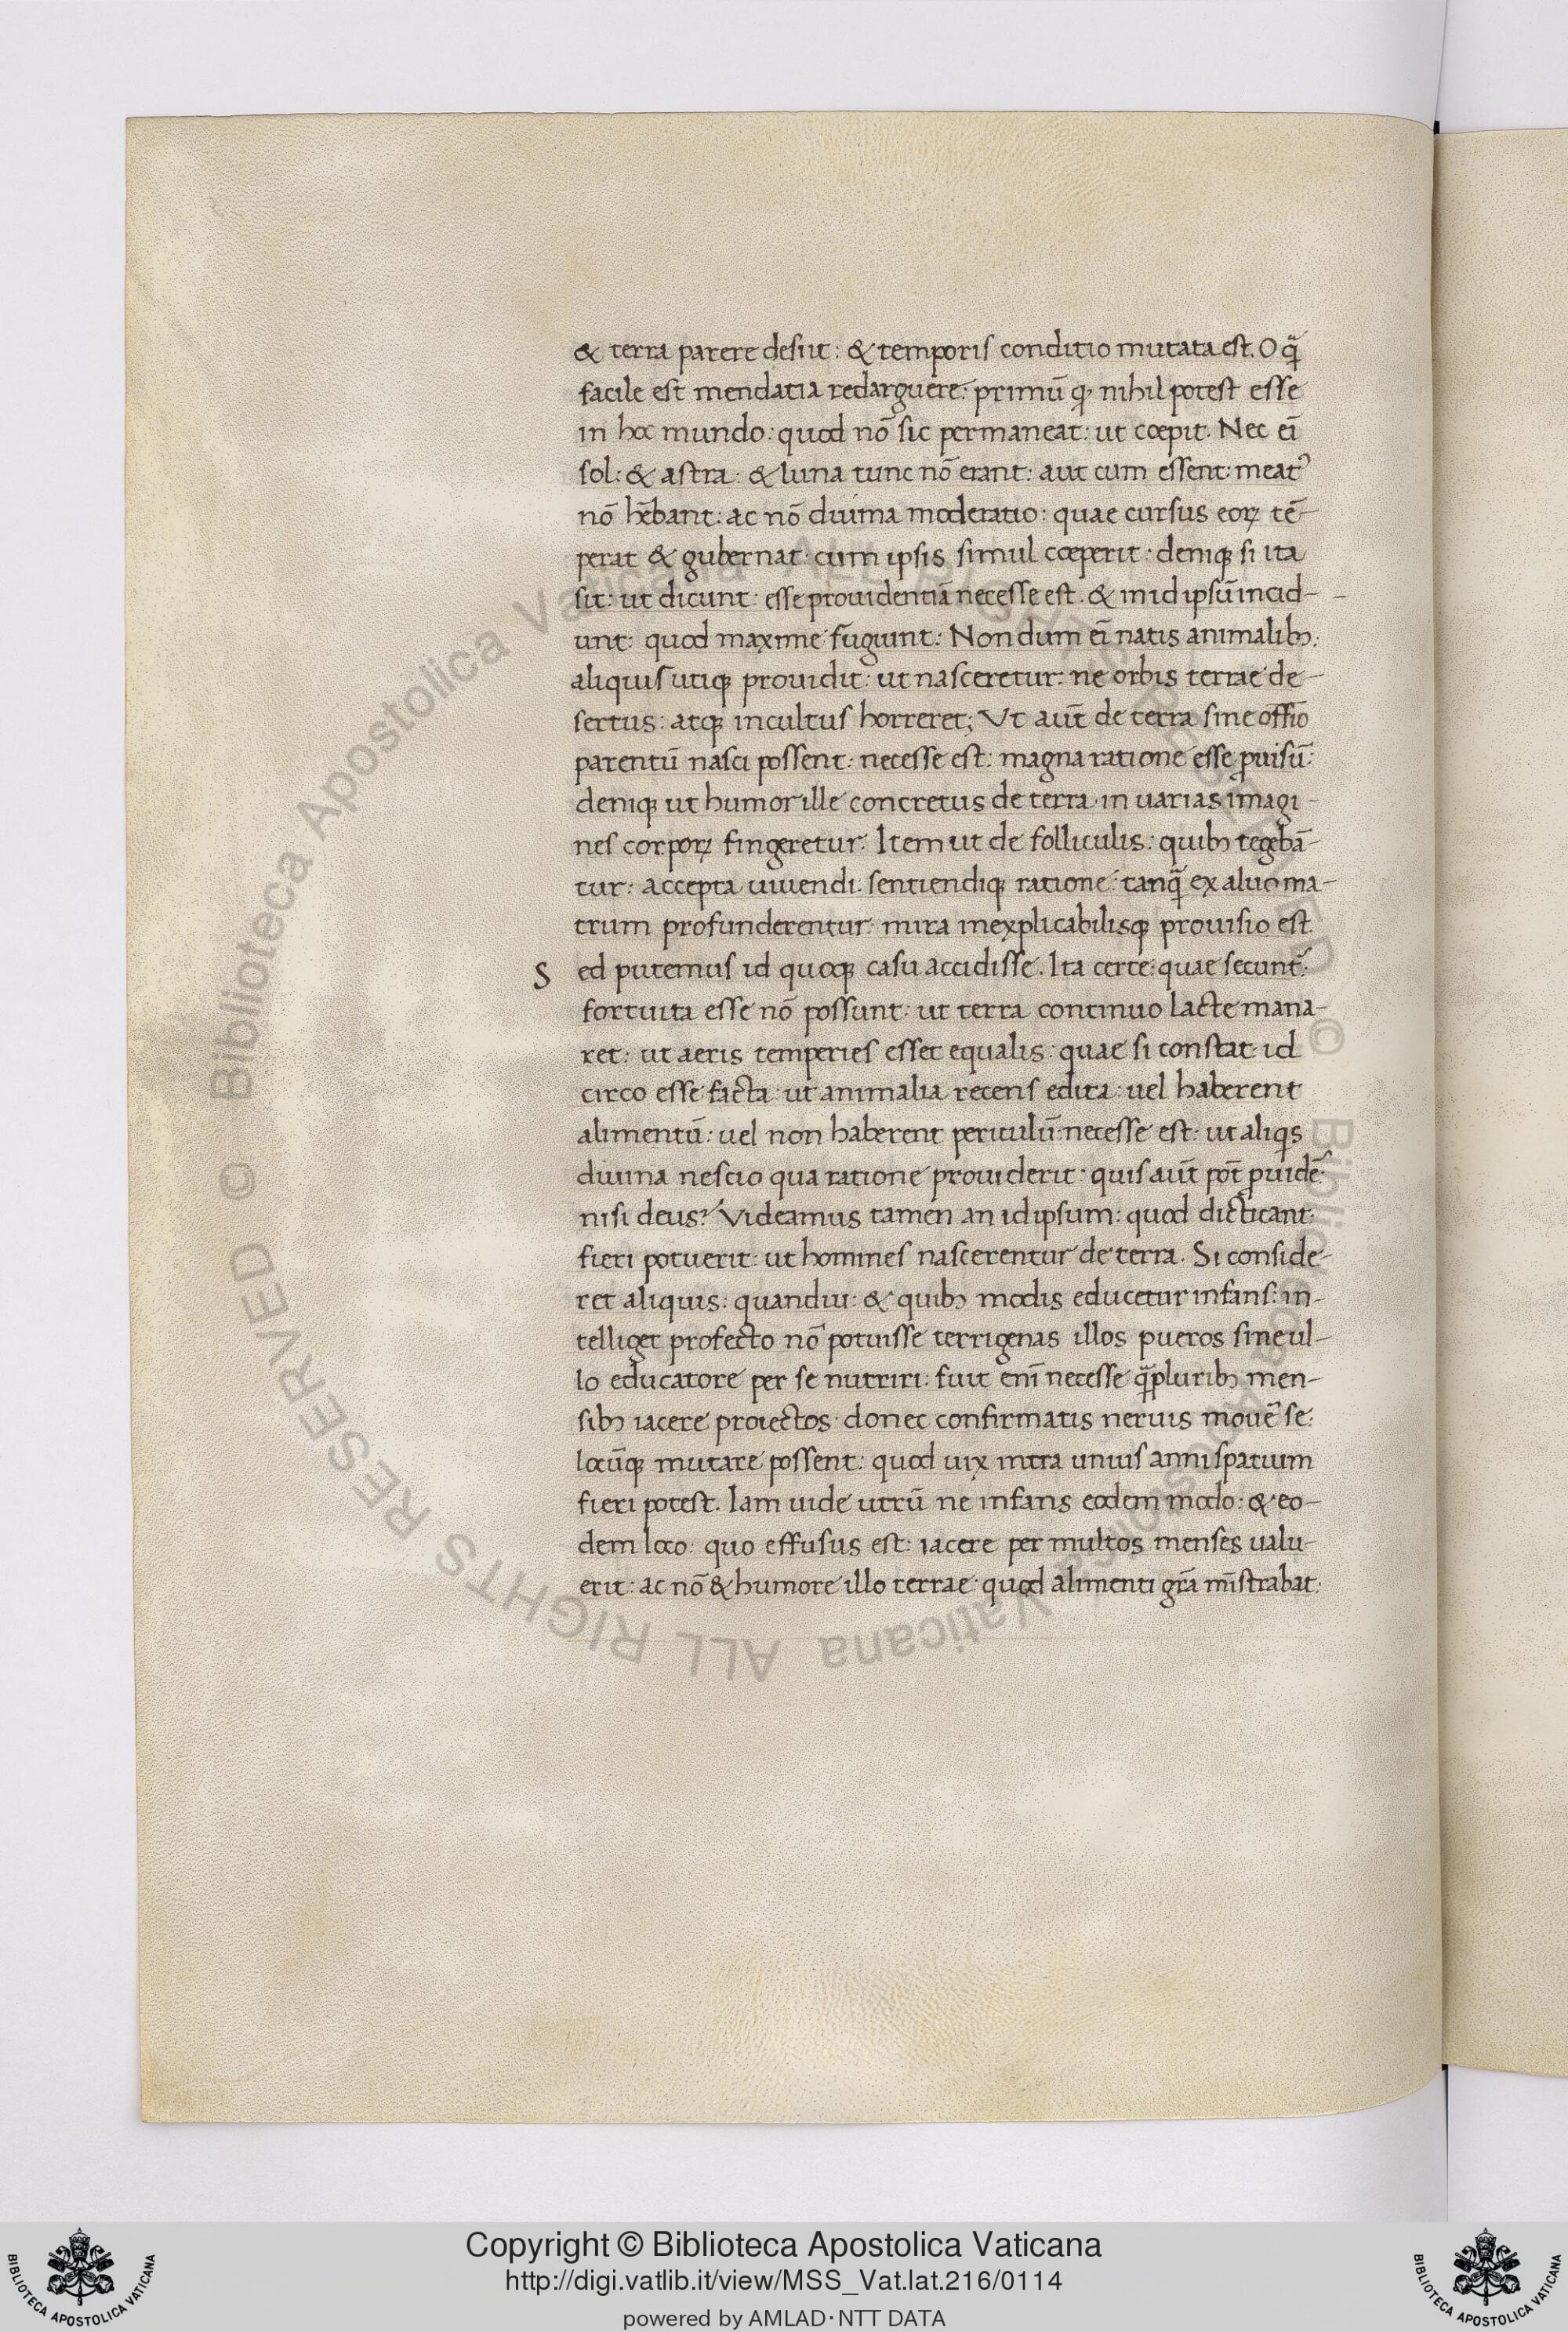 & terra parere desiit: & temporis conditio mutata est. O q̄
facile est mendatia redarguere: primū qꝫ nihil potest esse
in hoc mundo: quod nō sic permaneat: ut cœpit. Nec eī
sol: & astra: & luna tunc nō erant: aut cum essent: meatꝰ
nō hēbant: ac nō diuina moderatio: quae cursus eoꝝ tē-
perat & gubernat: cum ipsis simul cœperit: deniqꝫ si ita
sit: ut dicunt: esse prouidentiā necesse est. & in id ipsū incid-
unt: quod maxime fugiunt: Non dum eī natis animalibꝫ:
aliquis utiqꝫ prouidit: ut nasceretur: ne orbis terrae de-
sertus: atqꝫ incultus horreret; Vt aūt de terra sine offīo
parentū nasci possent: necesse est: magna ratione esse ꝓuisū:
deniqꝫ ut humor ille concretus de terra in uarias imagi-
nes corpoꝝ fingeretur. Item ut de folliculis: quibꝫ tegebā-
tur: accepta uiuendi. sentiendiqꝫ ratione: tanq̄ ex aluo ma-
trum profunderentur: mira inexplicabilisqꝫ prouisio est
Sed putemus id quoqꝫ casu accidisse. Ita certe: quae secunt̄:
fortuita esse nō possunt: ut terra continuo lacte mana-
ret: ut aeris temperies esset equalis: quae si constat: id
circo esse facta: ut animalia recens edita: uel haberent
alimentū: uel non haberent periculū: necesse est: ut aliqs
diuina nescio qua ratione prouiderit: quis aūt pōt ꝓuidē:
nisi deus? Videamus tamen an id ipsum: quod dictitant:
fieri potuerit: ut homines nascerentur de terra. Si conside-
ret aliquis: quandiu: & quibꝫ modis educetur infans: in-
telliget profecto nō potuisse terrigenas illos pueros sine ul-
lo educatore per se nutriri: fuit enī necesse q̄pluribꝫ men-
sibꝫ iacere proiectos: donec confirmatis neruis mouē se:
locūqꝫ mutare possent: quod uix intra unius anni spatium
fieri potest. Iam uide utrū ne infans eodem modo: & eo-
dem loco: quo effusus est: iacere per multos menses ualu-
erit: ac nō & humore illo terrae: quod alimenti grā mīstrabat:
Copyright © Biblioteca Apostolica Vaticana
http://digi.vatlib.it/view/MSS_Vat.lat.216/0114
powered by AMLAD·NTT DATA
© Biblioteca Apostolica Vaticana ALL RIGHTS RESERVED
© Biblioteca Apostolica Vaticana ALL RIGHTS RESERVED
BIBLIOTECA APOSTOLICA VATICANA
BIBLIOTECA APOSTOLICA VATICANA